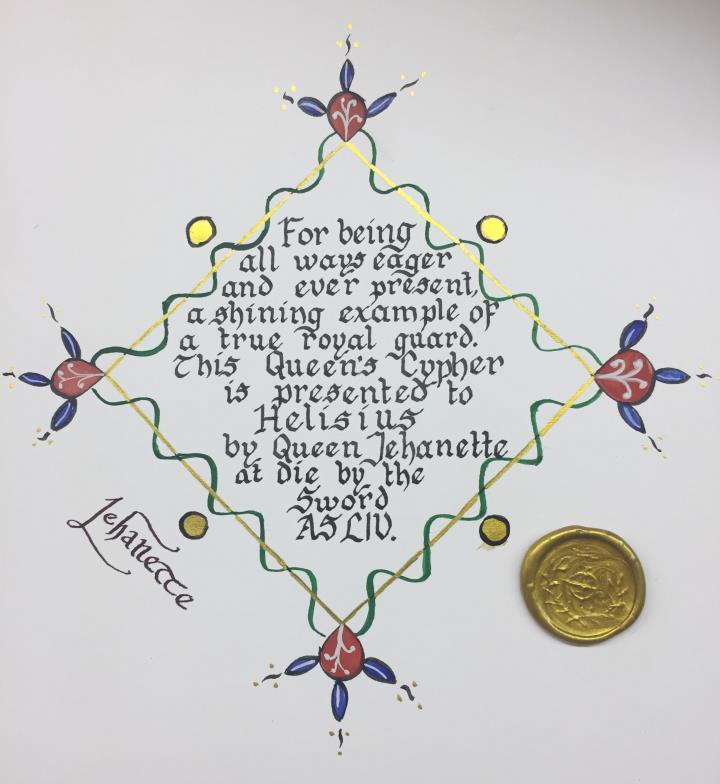 For being
all ways eager
and ever present,
a shining example of
a true royal guard.
This Queen's Cypher
is presented to
Helisius
by Queen Jehanette
at die by the
Sword
AS LIV.
Jehanette